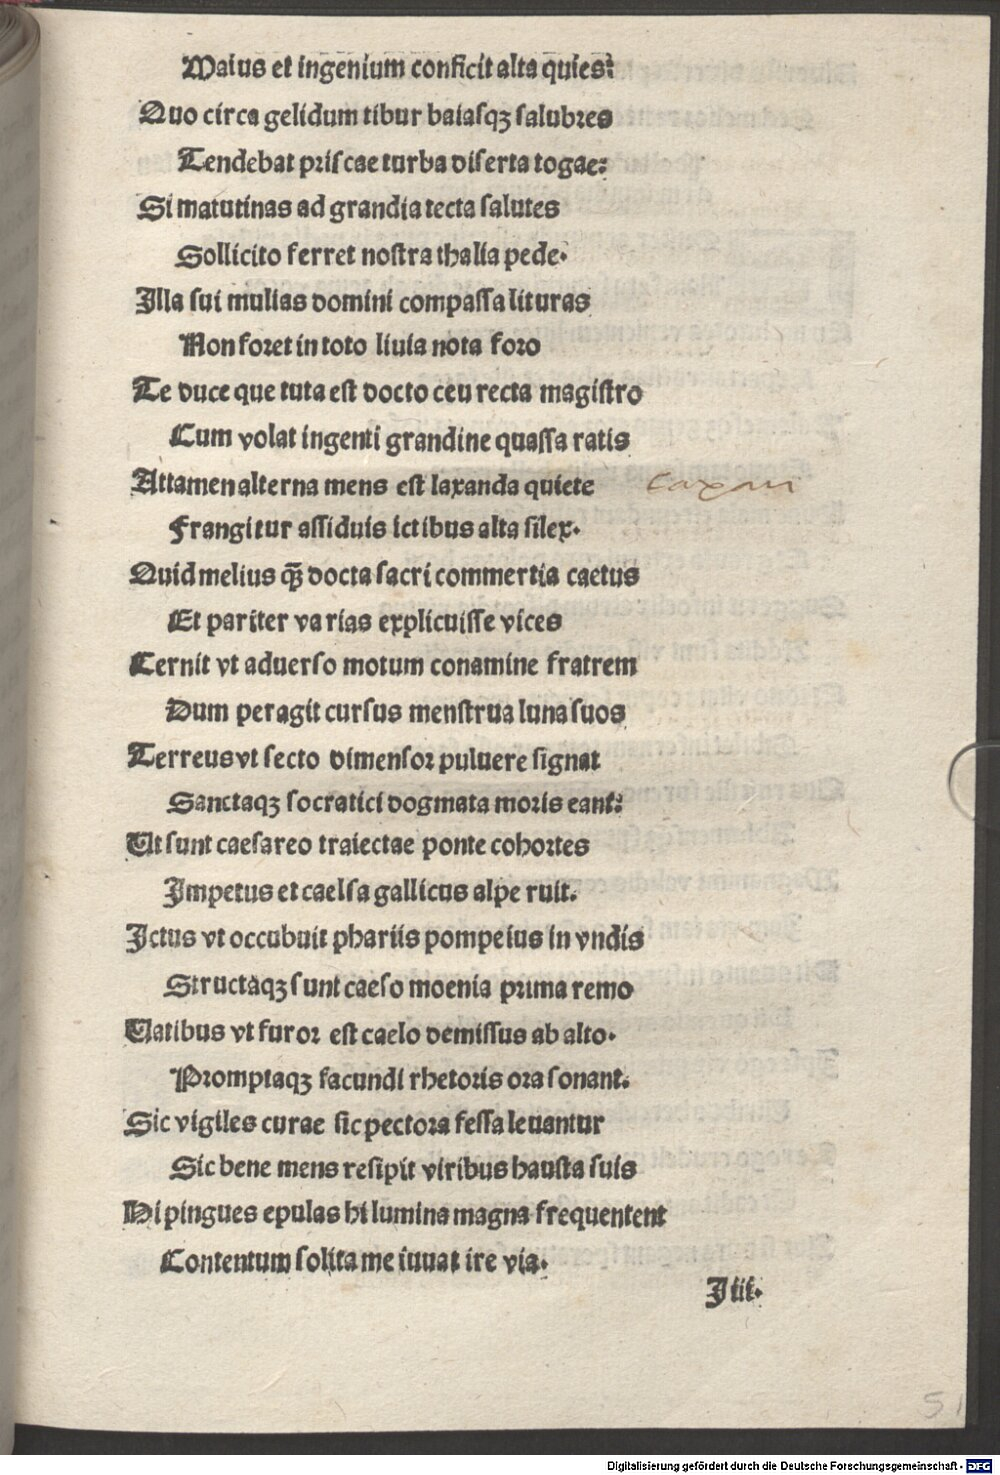 Maius et ingenium conficit alta quies:
Quo circa gelidum tibur baiasqꝫ salubres
Tendebat priscae turba diserta togae:
Si matutinas ad grandia tecta salutes
Sollicito ferret nostra thalia pede.
Illa sui mulias domini compassa lituras
Non foret in toto liuia nota foro
Te duce que tuta est docto ceu recta magistro
Cum volat ingenti grandine quassa ratis
Attamen alterna mens est laxanda quiete
Frangitur assiduis ictibus alta silex.
Quid melius qꝫ̄ docta sacri commertia caetus
Et pariter varias explicuisse vices
Cernit vt aduerso motum conamine fratrem
Dum peragit cursus menstrua luna suos
Terreus vt secto dimensor puluere signat
Sanctaqꝫ socratici dogmata moris eant:
Ut sunt caesareo traiectae ponte cohortes
Impetus et caelsa gallicus alpe ruit.
Ictus vt occubuit phariis pompeius in vndis
Structaqꝫ sunt caeso moenia prima remo
Uatibus vt furor est caelo demissus ab alto.
Promptaqꝫ facundi rhetoris ora sonant.
Sic vigiles curae sic pectora fessa leuantur
Sic bene mens resipit viribus hausta suis
Hi pingues epulas hi lumina magna frequentent
Contentum solita me iuuat ire via.
Iiii.
51
Digitalisierung gefördert durch die Deutsche Forschungsgemeinschaft - DFG